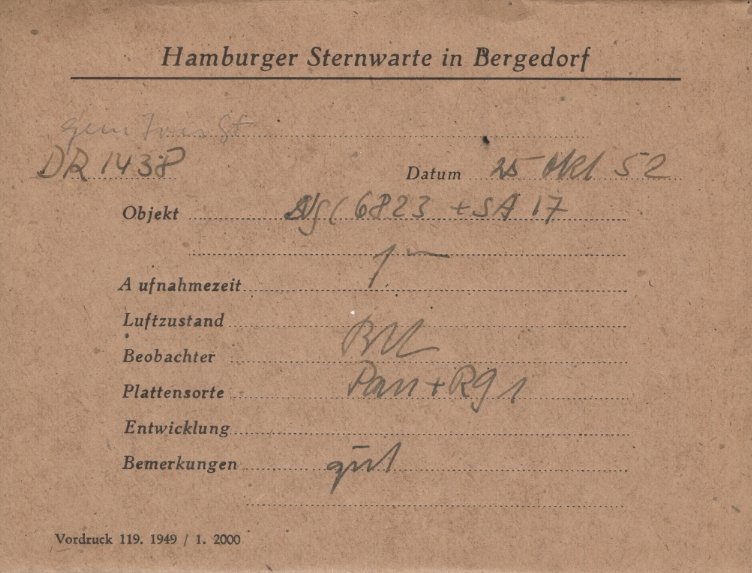 Hamburger Sternwarte in Bergedorf
DR 1438
Datum 25 Okt 52
Objekt NGC 6823 + SA 17
Aufnahmezeit
Luftzustand
Beobachter
Plattensorte Pan + RG 1
Entwicklung
Bemerkungen gut
Vordruck 119. 1949 / 1. 2000